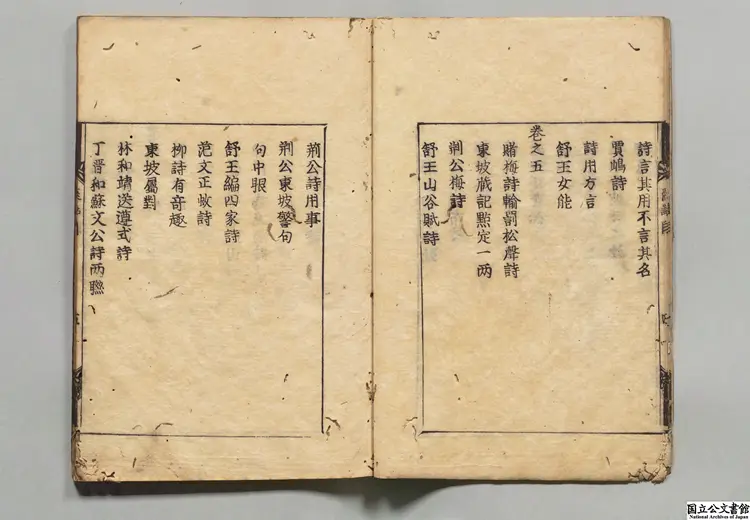 詩言其用不言其名
賈嶋詩
詩用方言
舒王女能
卷之五
賭梅詩輸罰松聲詩
東坡戲記點定一两
荆公梅詩
舒王山谷賦詩
荊公詩用事
荆公東坡警句
句中眼
舒王編四家詩
范文正蚊詩
柳詩有奇趣
東坡屬對
林和靖送遵式詩
丁晋和蘇文公詩两聯
国立公文書館
National Archives of Japan